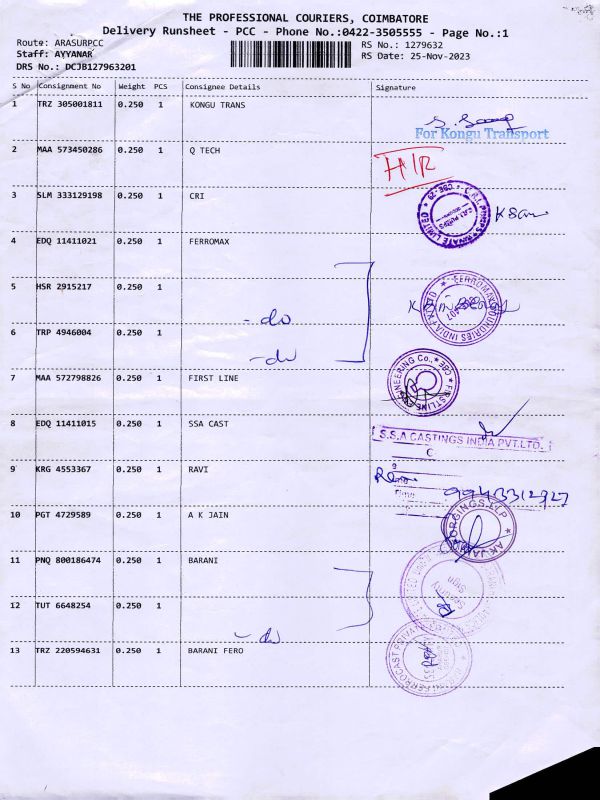 THE PROFESSIONAL COURIERS, COIMBATORE
Delivery Runsheet - PCC - Phone No.:0422-3505555 - Page No.:1
Route: ARASURPCC RS No.: 1279632
Staff: AYYANAR RS Date: 25-Nov-2023
DRS No.: DCJB127963201
S No Consignment No Weight PCS Consignee Details Signature
1 TRZ 305001811 0.250 1 KONGU TRANS
For Kongu Transport
2 MAA 573450286 0.250 1 Q TECH H/R
3 SLM 333129198 0.250 1 CRI
4 EDQ 11411021 0.250 1 FERROMAX
5 HSR 2915217 0.250 1
-do
6 TRP 4946004 0.250 1
-do
7 MAA 572798826 0.250 1 FIRST LINE
8 EDQ 11411015 0.250 1 SSA CAST
S.S.A CASTINGS INDIA PVT.LTD.
9 KRG 4553367 0.250 1 RAVI
9943312927
10 PGT 4729589 0.250 1 A K JAIN
11 PNQ 800186474 0.250 1 BARANI
12 TUT 6648254 0.250 1
-do
13 TRZ 220594631 0.250 1 BARANI FERO